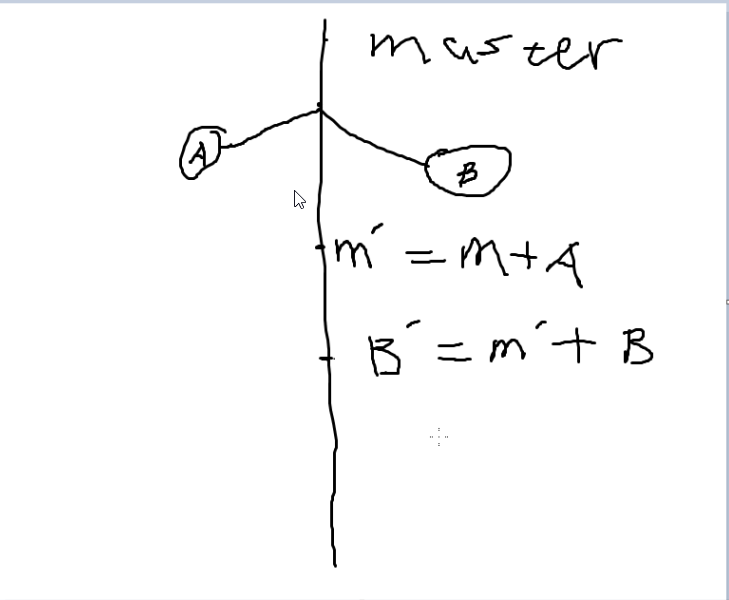 master
A
B
m' = m + A
B' = m' + B